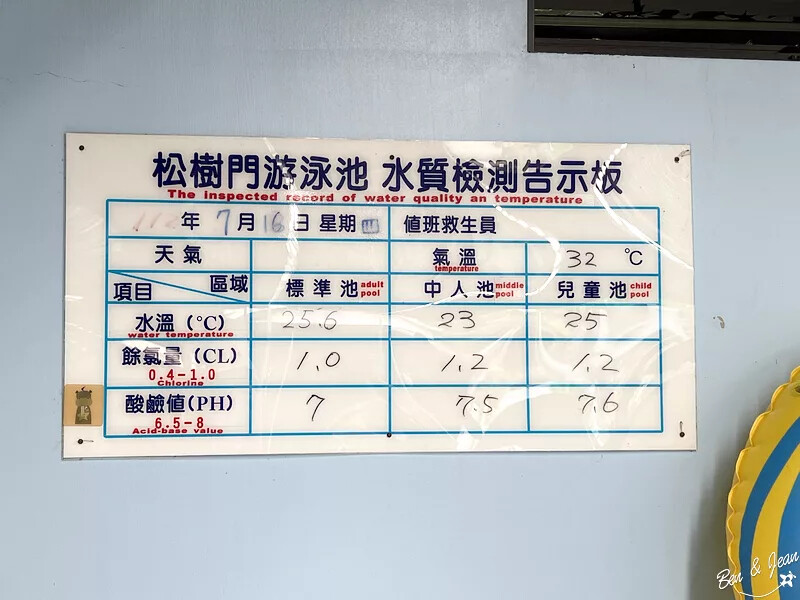 松樹門游泳池 水質檢測告示板
The inspected record of water quality an temperature
年 7 月 16 日 星期 四 值班救生員
天氣 氣溫 temperature 32 ℃
項目 區域 標準池 adult pool 中人池 middle pool 兒童池 child pool
水溫 (℃) water temperature 25.6 23 25
餘氯量 (CL) 0.4-1.0 Chlorine 1.0 1.2 1.2
酸鹼值(PH) 6.5-8 Acid-base value 7 7.5 7.6
Ben & Jean